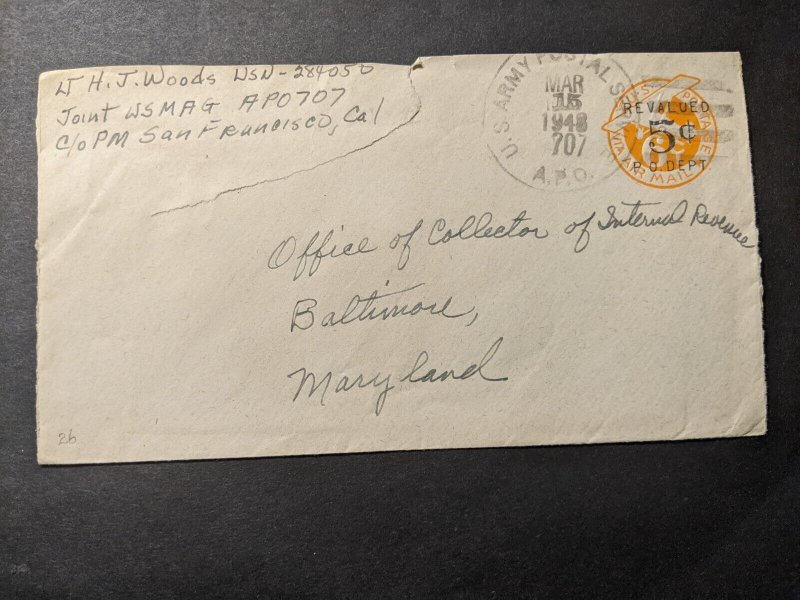 Lt H. J. Woods USN - 284050
Joint USMAG APO707
C/o PM San Francisco, Cal
U.S. ARMY POSTAL S
MAR
15
1948
707
A.P.O.
REVALUED
5¢
P.O. DEPT
VIA AIR MAIL
Office of Collector of Internal Revenue
Baltimore,
Maryland
26